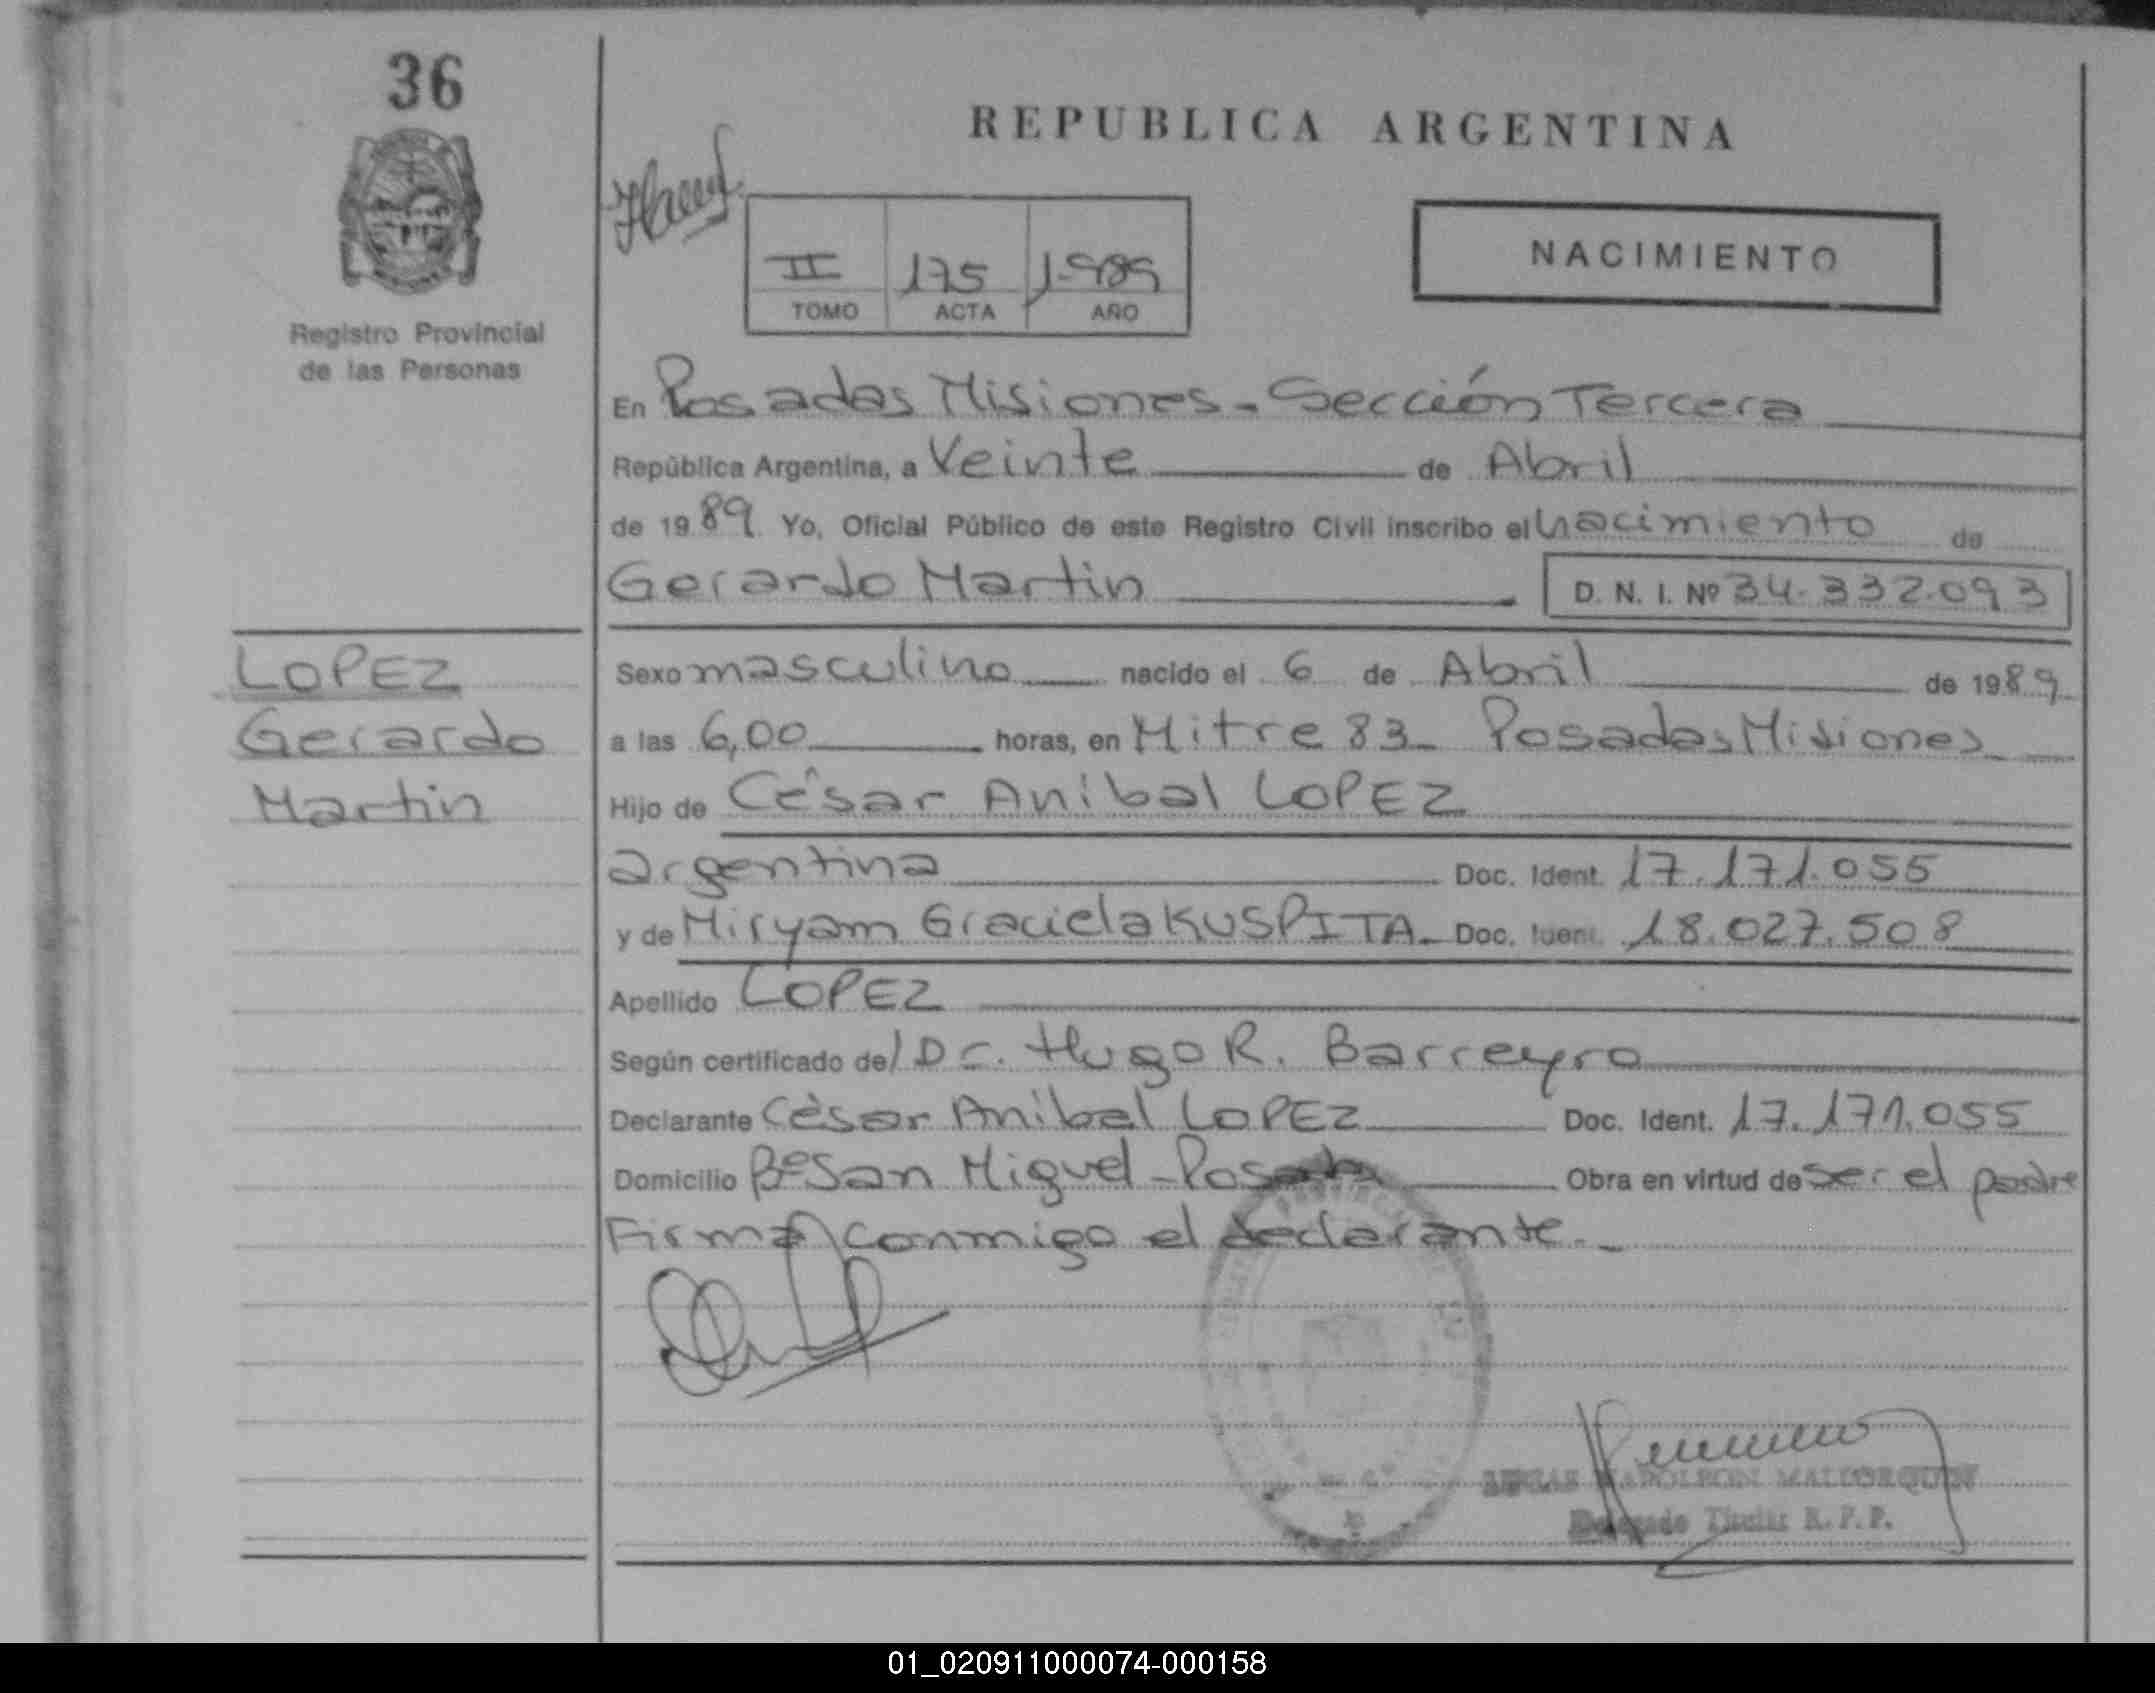 36
REPUBLICA ARGENTINA
II 175 1.989
TOMO ACTA AÑO
NACIMIENTO
Registro Provincial
de las Personas
En Posadas Misiones - Sección Tercera
República Argentina, a Veinte de Abril
de 1989 Yo, Oficial Público de este Registro Civil inscribo el nacimiento de
Gerardo Martin D. N. I. Nº 34.332.093
LOPEZ
Gerardo
Martin
Sexo masculino nacido el 6 de Abril de 1989
a las 6,00 horas, en Mitre 83 - Posadas Misiones
Hijo de César Anibal LOPEZ
argentina Doc. Ident. 17.171.055
y de Miryam Graciela KUSPITA - Doc. Ident. 18.027.508
Apellido LOPEZ
Según certificado del Dr. Hugo R. Barreyro
Declarante César Anibal LOPEZ Doc. Ident. 17.171.055
Domicilio Bº San Miguel - Posadas Obra en virtud de ser el padre
Firma conmigo el declarante. -
NAPOLEON MALLORQUIN
Delegado Titular R.P.P.
01_020911000074-000158